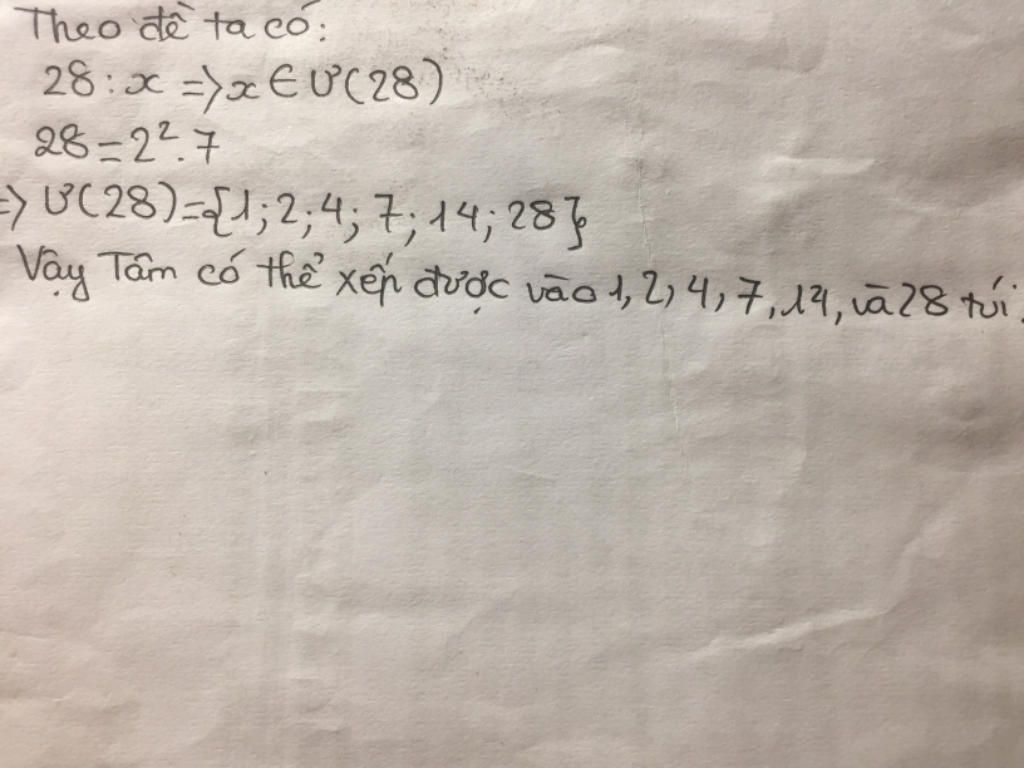 Theo đề ta có:
28:x => x ∈ Ư(28)
28 = 2².7
=> Ư(28)={1;2;4;7;14;28}
Vậy Tâm có thể xếp được vào 1, 2, 4, 7, 14, và 28 túi.